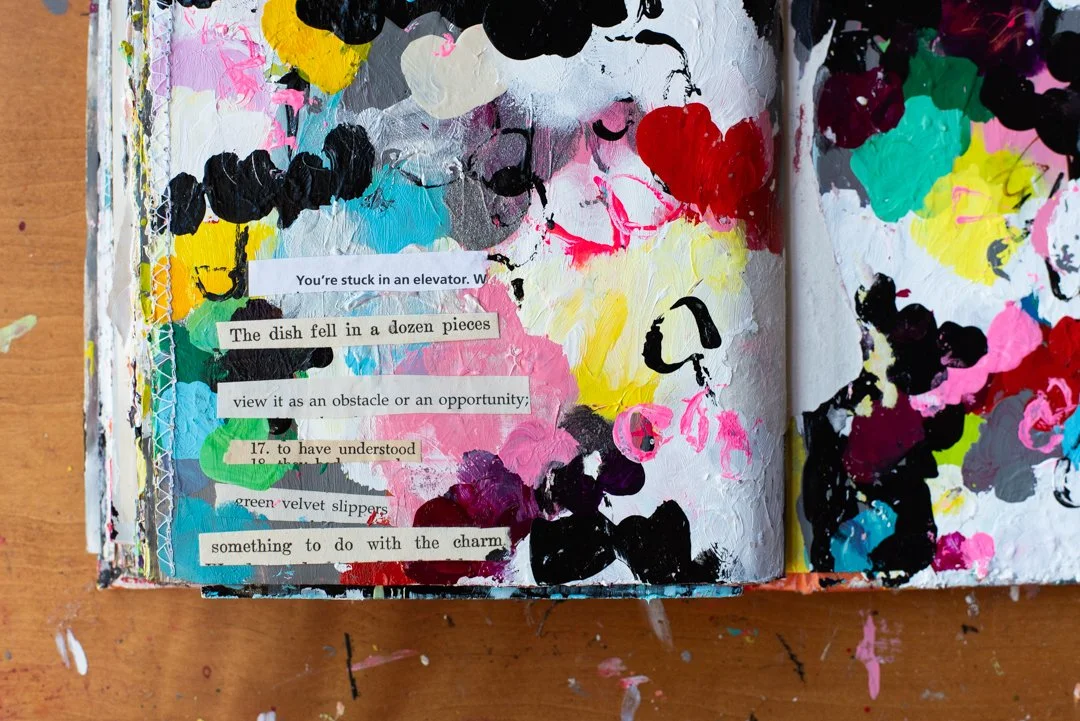 You're stuck in an elevator. W
The dish fell in a dozen pieces
view it as an obstacle or an opportunity;
17. to have understood
green velvet slippers
something to do with the charm